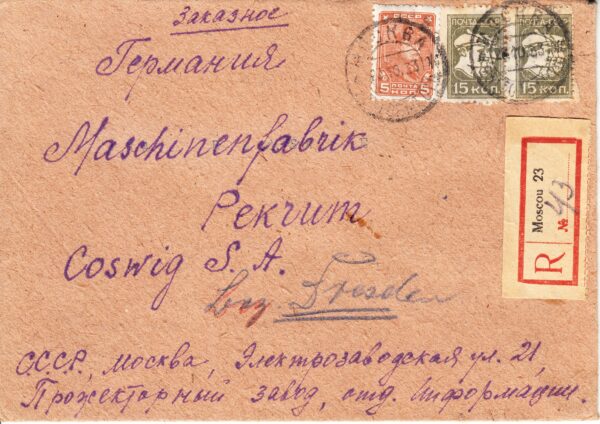 Заказное
Германия
Maschinenfabrik
Pekrum
Coswig S. A.
bez Dresden
СССР, Москва, Электрозаводская ул. 21,
Прожекторный завод, отд. Информации.
МОСКВА
СССР
5 ПОЧТА 5
КОП. КОП.
ПОЧТА СССР
15 КОП.
ПОЧТА СССР
15 КОП.
R
Moscou 23
№ 43